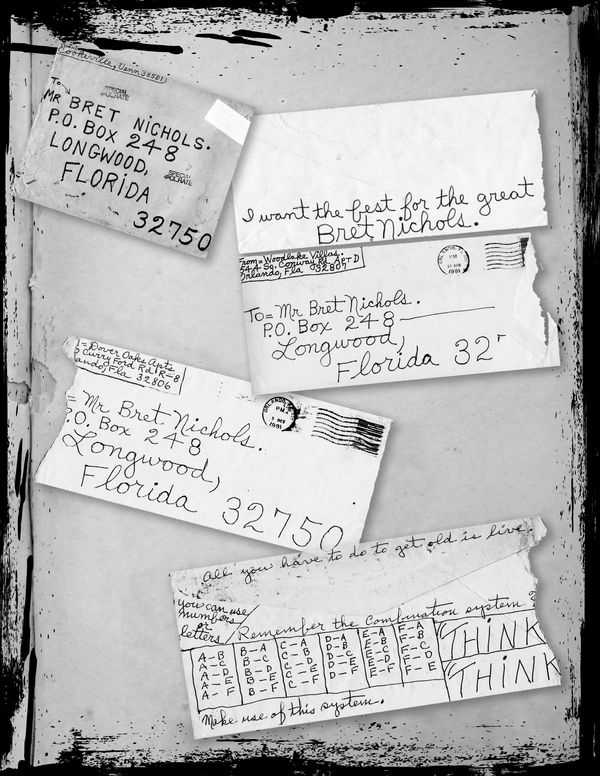 Cookeville, Tenn 38501
To
Mr BRET NiCHOLS.
P.O. BOX 248
LONGWOOD,
FLORiDA
32750
SPECIAL
4¢PLRATE
SPECIAL
4¢PLRATE
I want the best for the great
Bret Nichols.
From = Woodlake Villas
544 Sq. Conway Rd Apt D
Orlando, Fla 32807
ORLANDO, F
PM
21 APR
1981
To = Mr Bret Nichols.
P.O. Box 248
Longwood,
Florida 32
= Dover Oaks Apts
Curry Ford Rd R-8
ando, Fla 32806
ORLANDO, FL
PM
1981
= Mr Bret Nichols.
.O. Box 248
Longwood,
Florida 32750
All you have to do to get old is live.
you can use
numbers
or
letters
Remember the Combination system
A-B B-A C-A D-A E-A F-A
A-C B-C C-B D-B E-B F-B
A-D B-D C-D D-C E-C F-C
A-E B-E C-E D-E E-D F-D
A-F B-F C-F D-F E-F F-E
THiNK
THiNK
Make use of this system.